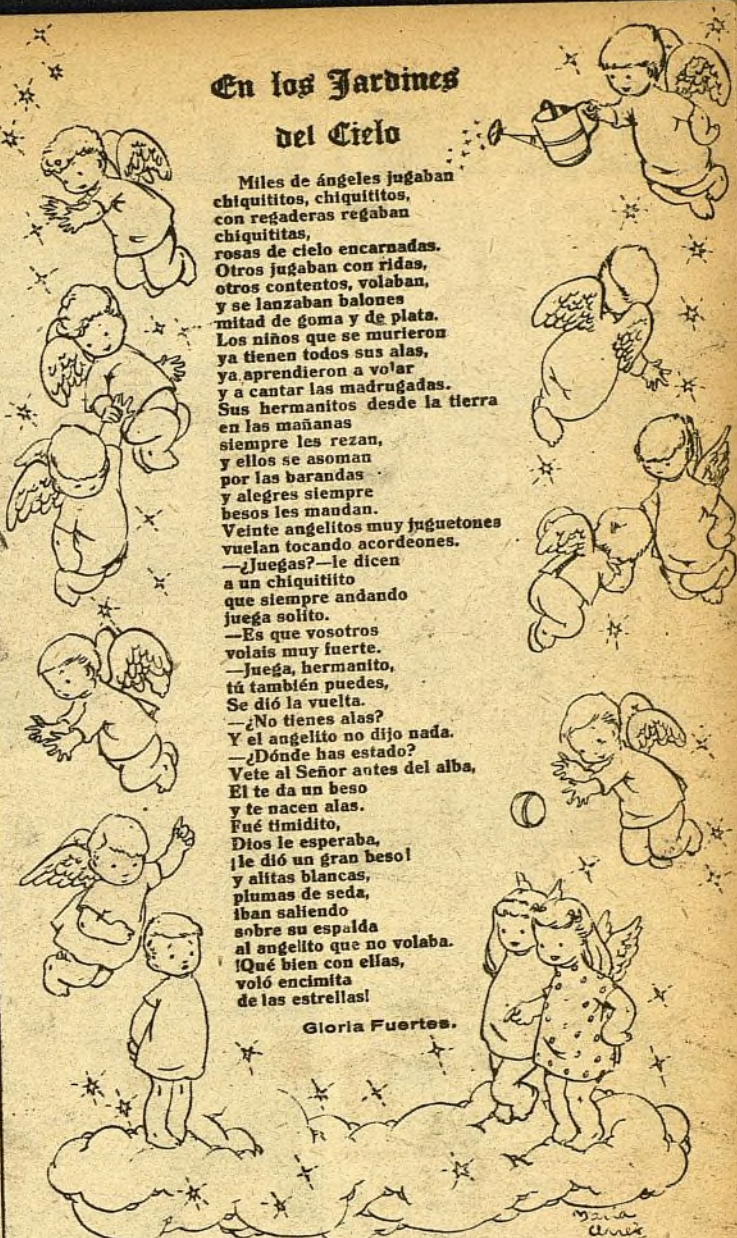 En los Jardines
del Cielo
Miles de ángeles jugaban
chiquititos, chiquititos,
con regaderas regaban
chiquititas,
rosas de cielo encarnadas.
Otros jugaban con ridas,
otros contentos, volaban,
y se lanzaban balones
mitad de goma y de plata.
Los niños que se murieron
ya tienen todos sus alas,
ya aprendieron a volar
y a cantar las madrugadas.
Sus hermanitos desde la tierra
en las mañanas
siempre les rezan,
y ellos se asoman
por las barandas
y alegres siempre
besos les mandan.
Veinte angelitos muy juguetones
vuelan tocando acordeones.
—¿Juegas?—le dicen
a un chiquitiito
que siempre andando
juega solito.
—Es que vosotros
volais muy fuerte.
—Juega, hermanito,
tú también puedes,
Se dió la vuelta.
—¿No tienes alas?
Y el angelito no dijo nada.
—¿Dónde has estado?
Vete al Señor antes del alba,
El te da un beso
y te nacen alas.
Fué timidito,
Dios le esperaba,
¡le dió un gran beso!
y alitas blancas,
plumas de seda,
iban saliendo
sobre su espalda
al angelito que no volaba.
!Qué bien con ellas,
voló encimita
de las estrellas!
Gloria Fuertes.
María